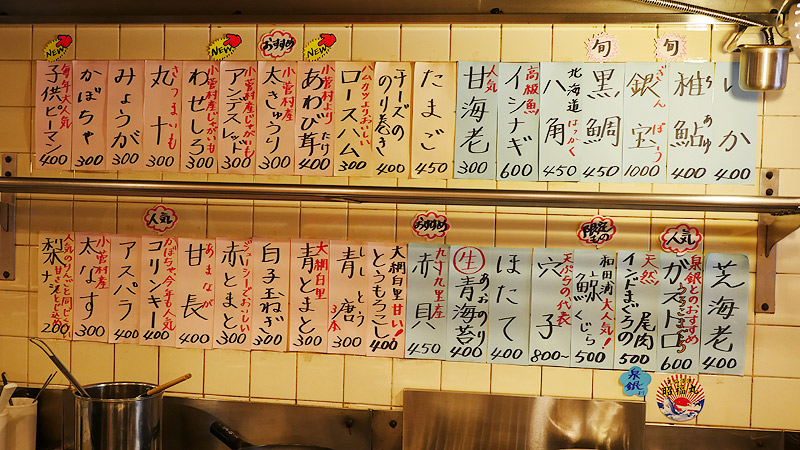 いか
400
稚鮎
ちあゆ
400
旬
銀宝
ぎんぽう
1000
旬
黒鯛
450
北海道
八角
はっかく
450
高級魚
イシナギ
600
人気
甘海老
300
たまご
450
チーズの
のり巻き
400
ハムカツよりおいしい
ロースハム
300
NEW
小菅村より
あわび茸
400
おすすめ
小菅村産
太きゅうり
300
NEW
小菅村産じゃがいも
アンデスレッド
300
小菅村産じゃがいも
わせしろ
300
さつまいも
丸十
300
みょうが
300
かぼちゃ
300
NEW
毎年大人気
子供ピーマン
400
芝海老
400
人気
泉銀とのおすすめ
ガストロ
600
天然
インドまぐろの
尾肉
500
泉銀
限定もの
和田浦
大人気!
鯨
くじら
500
天ぷらの代表
穴子
800~
ほたて
400
生
青海苔
あおのり
400
おすすめ
九十九里産
赤貝
450
大網白里
甘い!
とうもろこし
400
青唐
ししとう
3本
300
大網白里
青とまと
300
白子玉ねぎ
300
ジューシーでおいしい
赤とまと
300
甘長
あまなが
400
人気
かぼちゃ今年も人気
コリンキー
400
アスパラ
400
小菅村産
太なす
300
梨
200